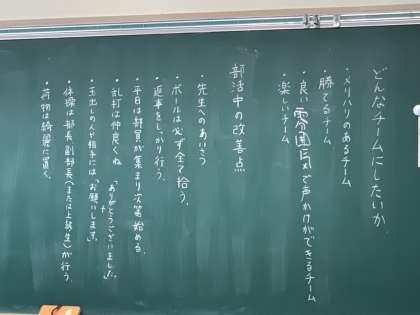 どんなチームにしたいか
・メリハリのあるチーム
・勝てるチーム
・良い雰囲気で声かけができるチーム
・楽しいチーム
部活中の改善点
・先生へのあいさつ
・ボールは必ず全て拾う。
・返事をしっかり行う。
・平日は部員が集まり次第始める。
・乱打は仲良くね
「ありがとうございました」
・玉出しの人や相手には「お願いします」
・体操は部長、副部長(または上級生)が行う。
・荷物は綺麗に置く。